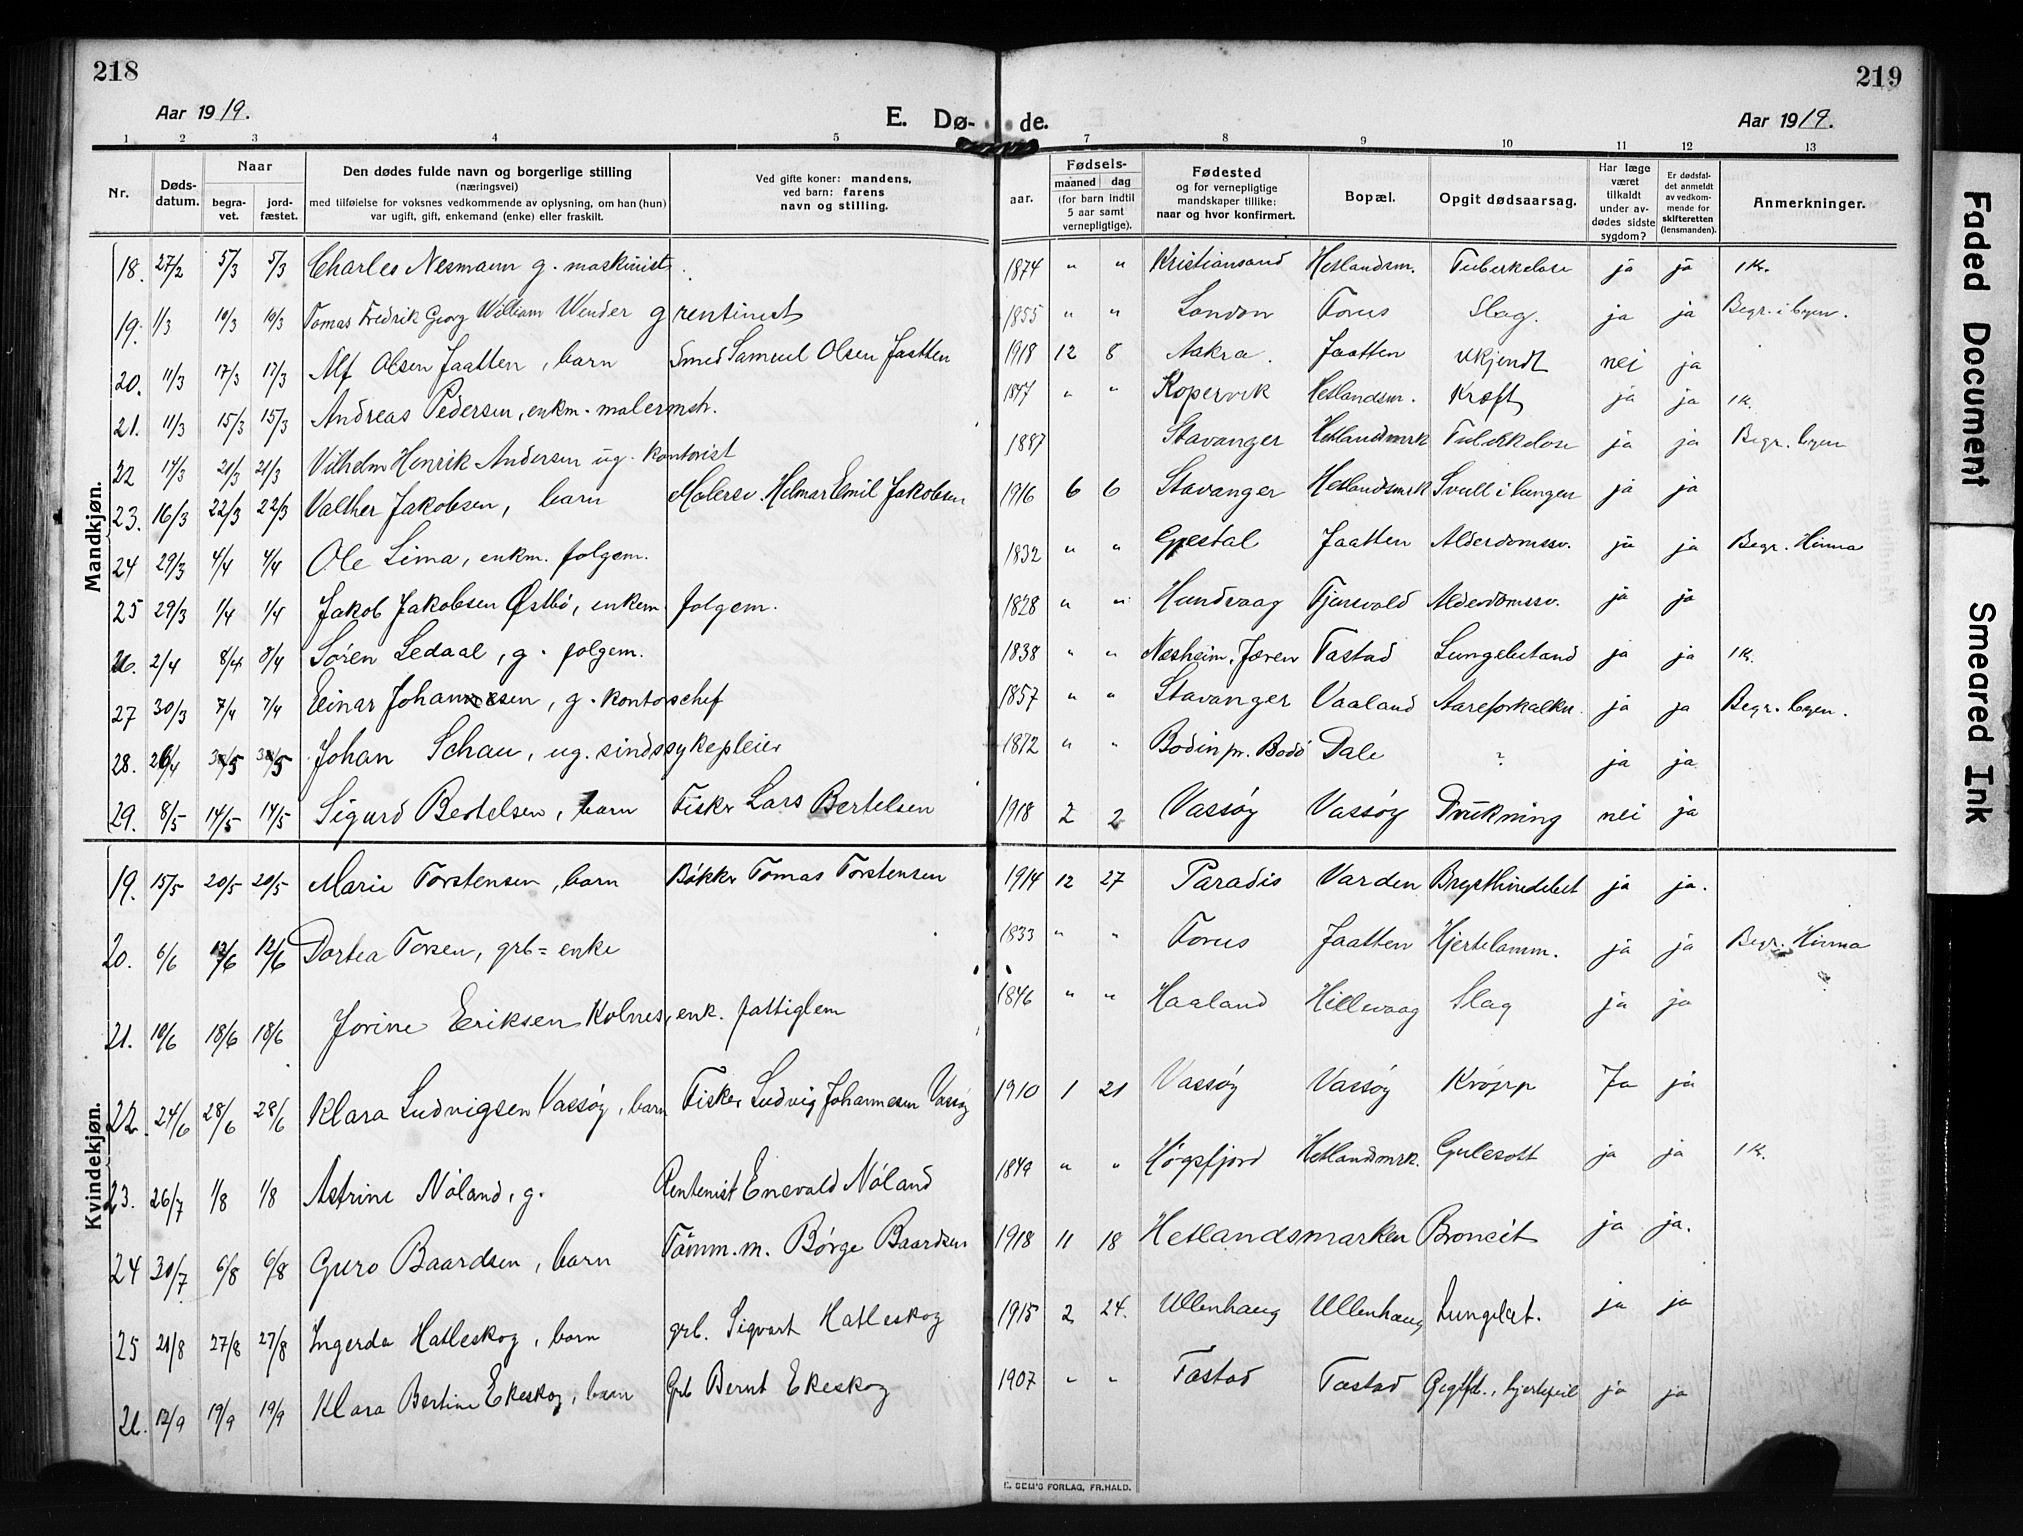 218
219
Aar 1919.
E. Dø- de.
Aar 1919.
1 2 3 4 5 7 8 9 10 11 12 13
Nr.
Døds-datum.
Naar
begra-vet.
jord-fæstet.
Den dødes fulde navn og borgerlige stilling
(næringsvei)
med tilføielse for voksnes vedkommende av oplysning, om han (hun)
var ugift, gift, enkemand (enke) eller fraskilt.
Ved gifte koner: mandens,
ved barn: farens
navn og stilling.
aar.
Fødsels-
maaned dag
(for barn indtil
5 aar samt
vernepligtige).
Fødested
og for vernepligtige
mandskaper tillike:
naar og hvor konfirmert.
Bopæl.
Opgit dødsaarsag.
Har læge
været
tilkaldt
under av-
dødes sidste
sygdom?
Er dødsfal-
det anmeldt
av vedkom-
mende for
skifteretten
(lensmanden).
Anmerkninger.
Mandkjøn.
18. 27/2 5/3 5/3 Charles Nesmann g. maskinist 1874 " " Kristiansand Hetlandsm. Tuberkelose ja ja 1 K.
19. 1/3 10/3 10/3 Tomas Fredrik Georg William Wender g rentinest 1855 " " London Forus Slag. ja ja Begr. i byen.
20. 11/3 17/3 17/3 Alf Olsen Jaatten, barn Smed Samuel Olsen Jaatten 1918 12 8 Aakra. Jaatten ukjendt nei ja
21. 11/3 15/3 15/3 Andreas Pedersen, enkm. malermstr. 1847 " " Kopervik Hetlandsm. Kræft ja ja 1 K.
22 14/3 21/3 21/3 Vilhelm Henrik Andersen ug. kontorist 1887 Stavanger Hetlandsmrk Tuberkelose ja ja Begr. byen
23. 16/3 22/3 22/3 Valther Jakobsen, barn Malersv. Helmar Emil Jakobsen 1916 6 6 Stavanger Hetlandsmrk Svull i lungen ja ja
24 29/3 4/4 4/4 Ole Lima, enkm. folgem. 1832 " " Gjestal Jaatten Alderdomssv. ja ja Begr. Hinna
25 29/3 1/4 1/4 Jakob Jakobsen Østbö, enkem. folgem. 1828 " " Hundvaag Tjensvold Alderdomssv. ja ja
26. 2/4 8/4 8/4 Sören Ledaal, g. folgem. 1838 " " Næsheim, Jæren Tastad Lungebetænd ja ja 1 K.
27 30/3 7/4 7/4 Einar Johannesen, g. kontorschef 1857 " " Stavanger Vaaland Aareforkalkn. ja ja Begr. byen.
28. 26/4 3/5 3/5 Johan Schau, ug. sindssykepleier 1872 " " Bodin pr. Bodö Dale ? ja ja
29. 8/5 14/5 14/5 Sigurd Bertelsen, barn Fisker Lars Bertelsen 1918 2 2 Vassöy Vassöy Drukning nei ja
Kvindekjøn.
19. 15/5 20/5 20/5 Marie Torstensen, barn Bökker Tomas Torstensen 1914 12 27 Paradis Varden Brysthindebet ja ja.
20. 6/6 12/6 12/6 Dortea Forsen, grb= enke 1833 " " Forus Jaatten Hjertelamm. ja ja Begr. Hinna
21. 10/6 18/6 18/6 Jorine Eriksen Kolnes, enk. fattiglem 1846 " " Haaland Hillevaag Slag ja ja
22. 24/6 28/6 28/6 Klara Ludvigsen Vassöy, barn Fisker Ludvig Johannesen Vassöy 1910 1 21 Vassöy Vassöy Kröpp Ja ja
23. 26/7 1/8 1/8 Astrine Nöland, g. Rentenist Enevald Nöland 1849 " " Högsfjord Hetlandsmrk. Gulesott ja ja 1 K.
24 30/7 6/8 6/8 Guro Baardsen, barn Tömm. m. Börge Baardsen 1918 11 18 Hetlandsmarken Broncit ja ja.
25 21/8 27/8 27/8 Ingerda Hatleskog, barn grb. Sigvart Hatleskog 1915 2 24. Ullenhaug Ullenhaug Lungebet. ja ja
26. 12/9 19/9 19/9 Klara Bertine Ekeskog, barn Grb Bernt Ekeskog 1907 " " Tastad Tastad Gigtfeb., hjertefeil ja ja
E. SEM'S FORLAG, FR.HALD.
Faded Document
Smeared Ink